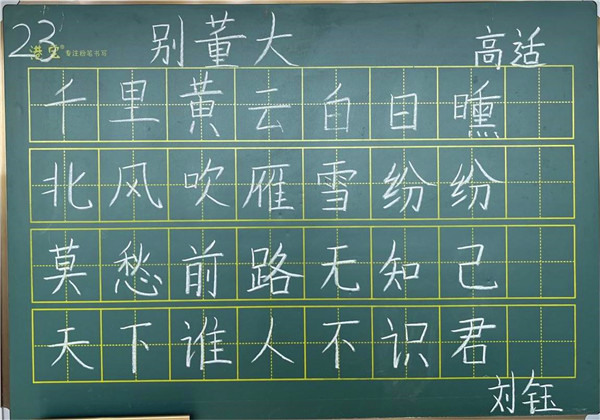 23 别董大 高适
港宝® 专注粉笔书写
千里黄云白日曛
北风吹雁雪纷纷
莫愁前路无知己
天下谁人不识君
刘钰